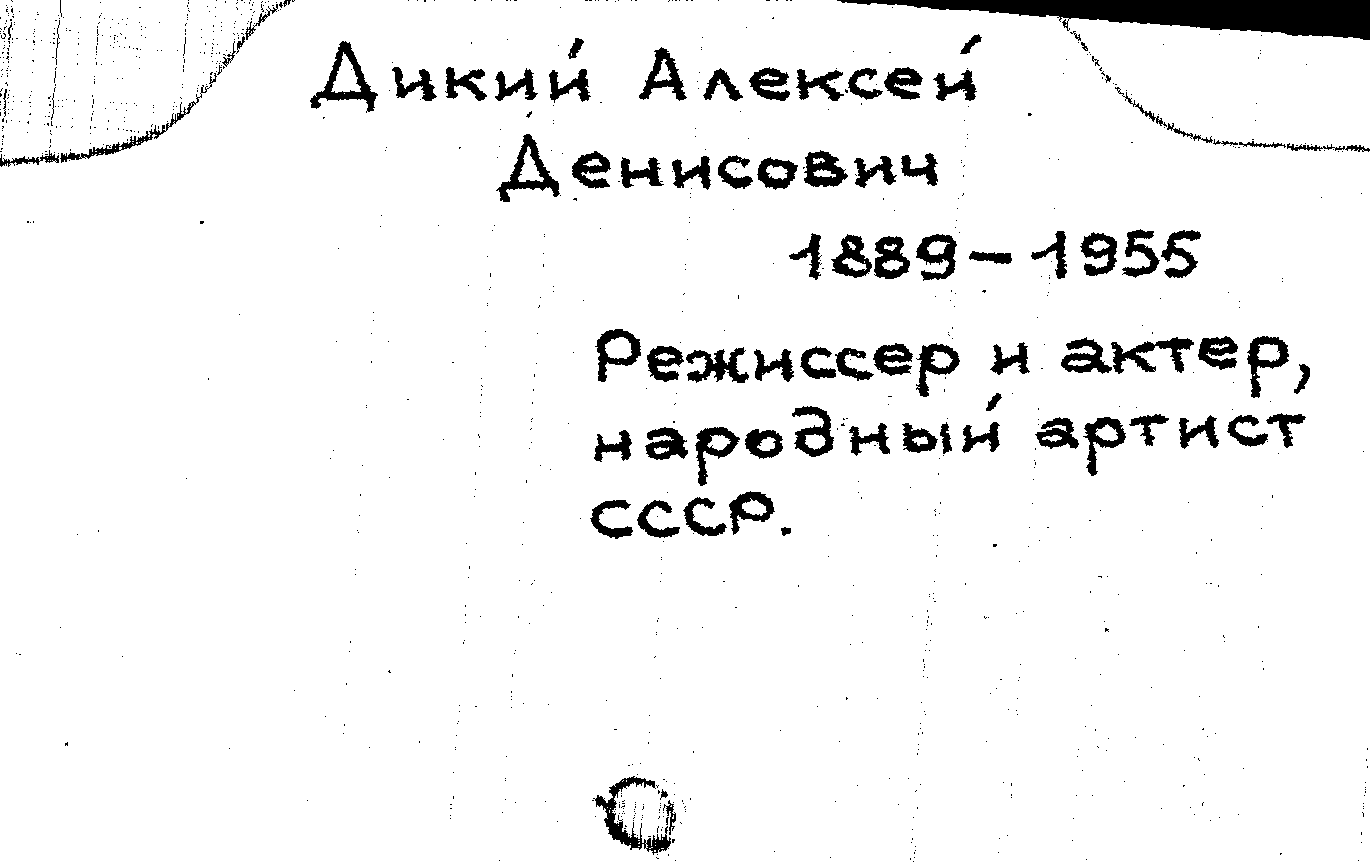 Дикий Алексей
Денисович
1889-1955
Режиссер и актер,
народный артист
СССР.